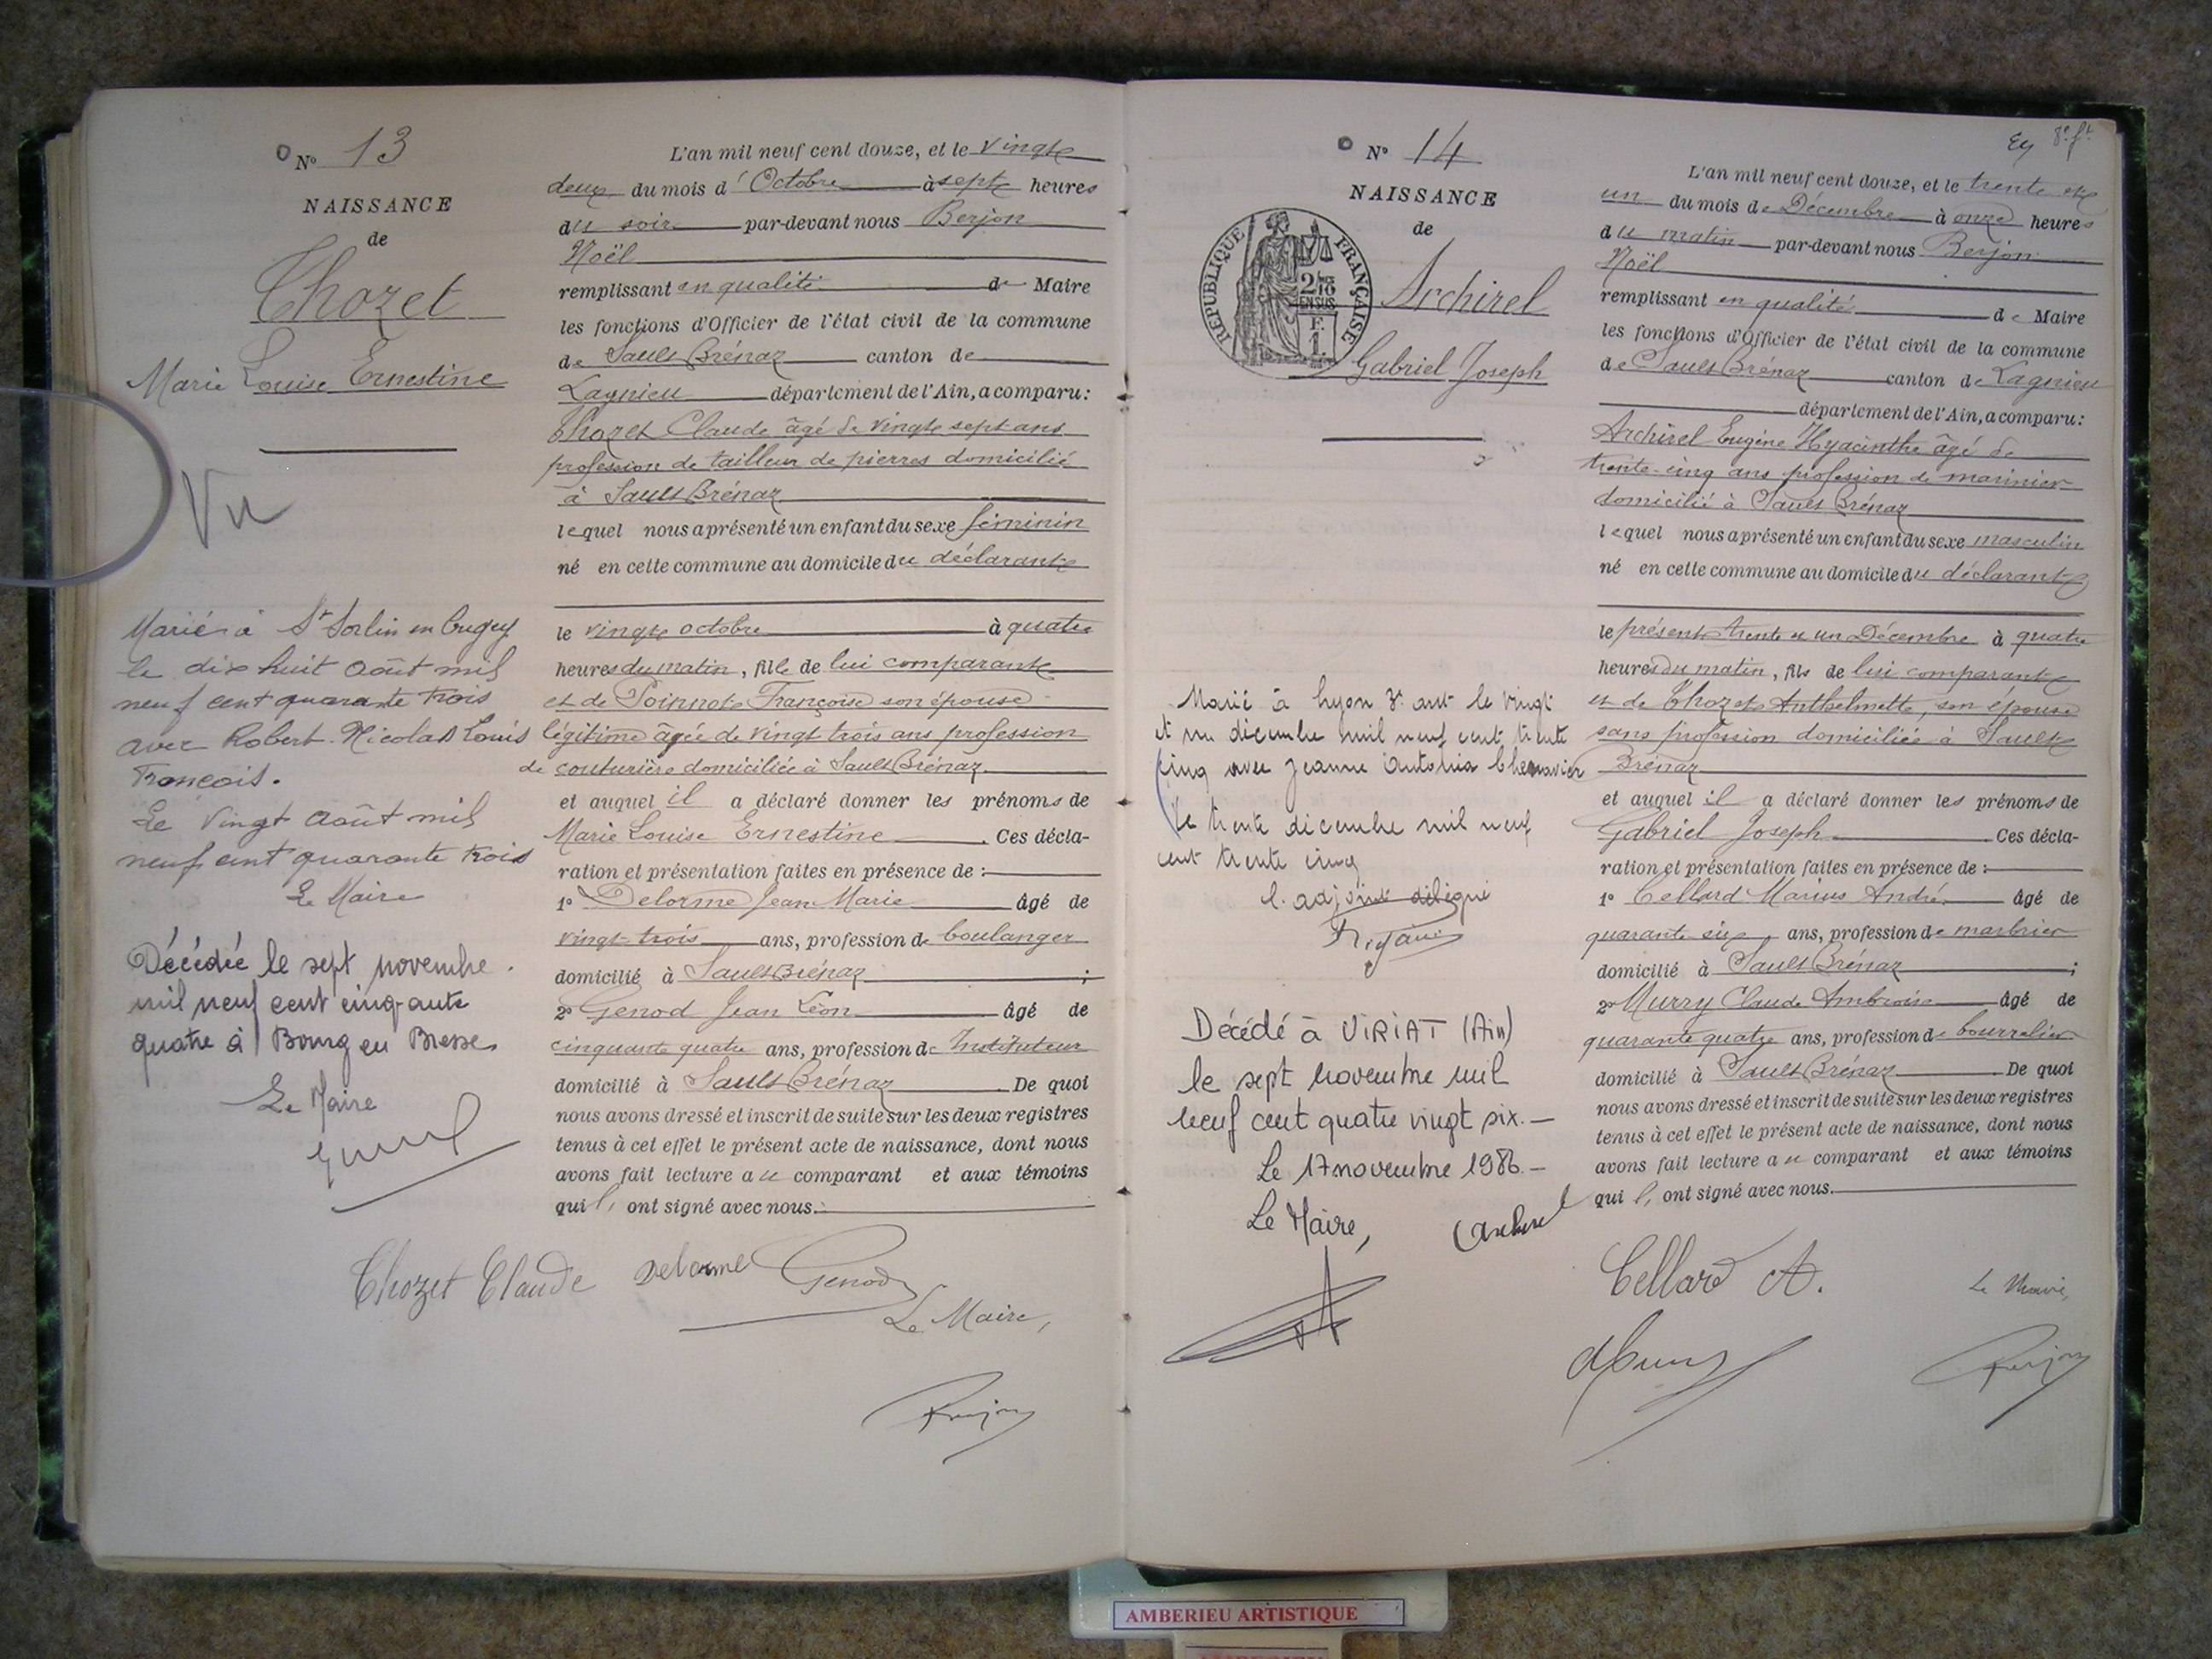 N° 13
NAISSANCE
de
Thozet
Marie Louise Ernestine
Vu
Mariée à St Sorlin en Bugey
le dix huit août mil
neuf cent quarante trois
avec Robert Nicolas Louis
François.
Le vingt août mil
neuf cent quarante trois
Le Maire
Décédée le sept novembre
mil neuf cent cinquante
quatre à Bourg en Bresse
Le Maire
L'an mil neuf cent douze, et le vingt
deux du mois d'Octobre à sept heures
du soir par-devant nous Berjon
Noël
remplissant en qualité de Maire
les fonctions d'Officier de l'état civil de la commune
de Sault Brénaz canton de
Lagnieu département de l'Ain, a comparu:
Thozet Claude âgé de vingt sept ans
profession de tailleur de pierres domicilié
à Sault Brénaz
lequel nous a présenté un enfant du sexe féminin
né en cette commune au domicile du déclarant
le vingt octobre à quatre
heures du matin, fille de lui comparant
et de Poinnot Françoise son épouse
légitime âgée de vingt trois ans profession
de couturière domiciliée à Sault Brénaz
et auquel il a déclaré donner les prénoms de
Marie Louise Ernestine. Ces décla-
ration et présentation faites en présence de :
1° Delorme Jean Marie âgé de
vingt-trois ans, profession de boulanger
domicilié à Sault Brénaz ;
2° Genod Jean Léon âgé de
cinquante quatre ans, profession de Instituteur
domicilié à Sault Brénaz. De quoi
nous avons dressé et inscrit de suite sur les deux registres
tenus à cet effet le présent acte de naissance, dont nous
avons fait lecture au comparant et aux témoins
qui l, ont signé avec nous.
Thozet Claude Delorme Genod
Le Maire,
Berjon
N° 14
NAISSANCE
de
RÉPUBLIQUE FRANÇAISE
2/10
EN SUS
F.
1.
Archirel
Gabriel Joseph
Marié à Lyon 3e arrt le vingt
et un décembre mil neuf cent trente
cinq avec Jeanne Antonia Chenavier
Le trente décembre mil neuf
cent trente cinq
L'adjoint délégué
Décédé à VIRIAT (Ain)
le sept novembre mil
neuf cent quatre vingt six.-
Le 17 novembre 1986.-
Le Maire,
L'an mil neuf cent douze, et le trente et
un du mois de Décembre à onze heures
du matin par-devant nous Berjon
Noël
remplissant en qualité de Maire
les fonctions d'Officier de l'état civil de la commune
de Sault Brénaz canton de Lagnieu
département de l'Ain, a comparu:
Archirel Eugène Hyacinthe âgé de
trente-cinq ans profession de marinier
domicilié à Sault Brénaz
lequel nous a présenté un enfant du sexe masculin
né en cette commune au domicile du déclarant
le présent trente et un Décembre à quatre
heures du matin, fils de lui comparant
et de Thozet Anthelmette, son épouse
sans profession domiciliée à Sault
Brénaz
et auquel il a déclaré donner les prénoms de
Gabriel Joseph. Ces décla-
ration et présentation faites en présence de :
1° Cellard Marius André âgé de
quarante six ans, profession de marbrier
domicilié à Sault Brénaz ;
2° Murry Claude Ambroise âgé de
quarante quatre ans, profession de bourrelier
domicilié à Sault Brénaz. De quoi
nous avons dressé et inscrit de suite sur les deux registres
tenus à cet effet le présent acte de naissance, dont nous
avons fait lecture au comparant et aux témoins
qui l, ont signé avec nous.
Archirel
Cellard A.
Le Maire,
Berjon
AMBERIEU ARTISTIQUE